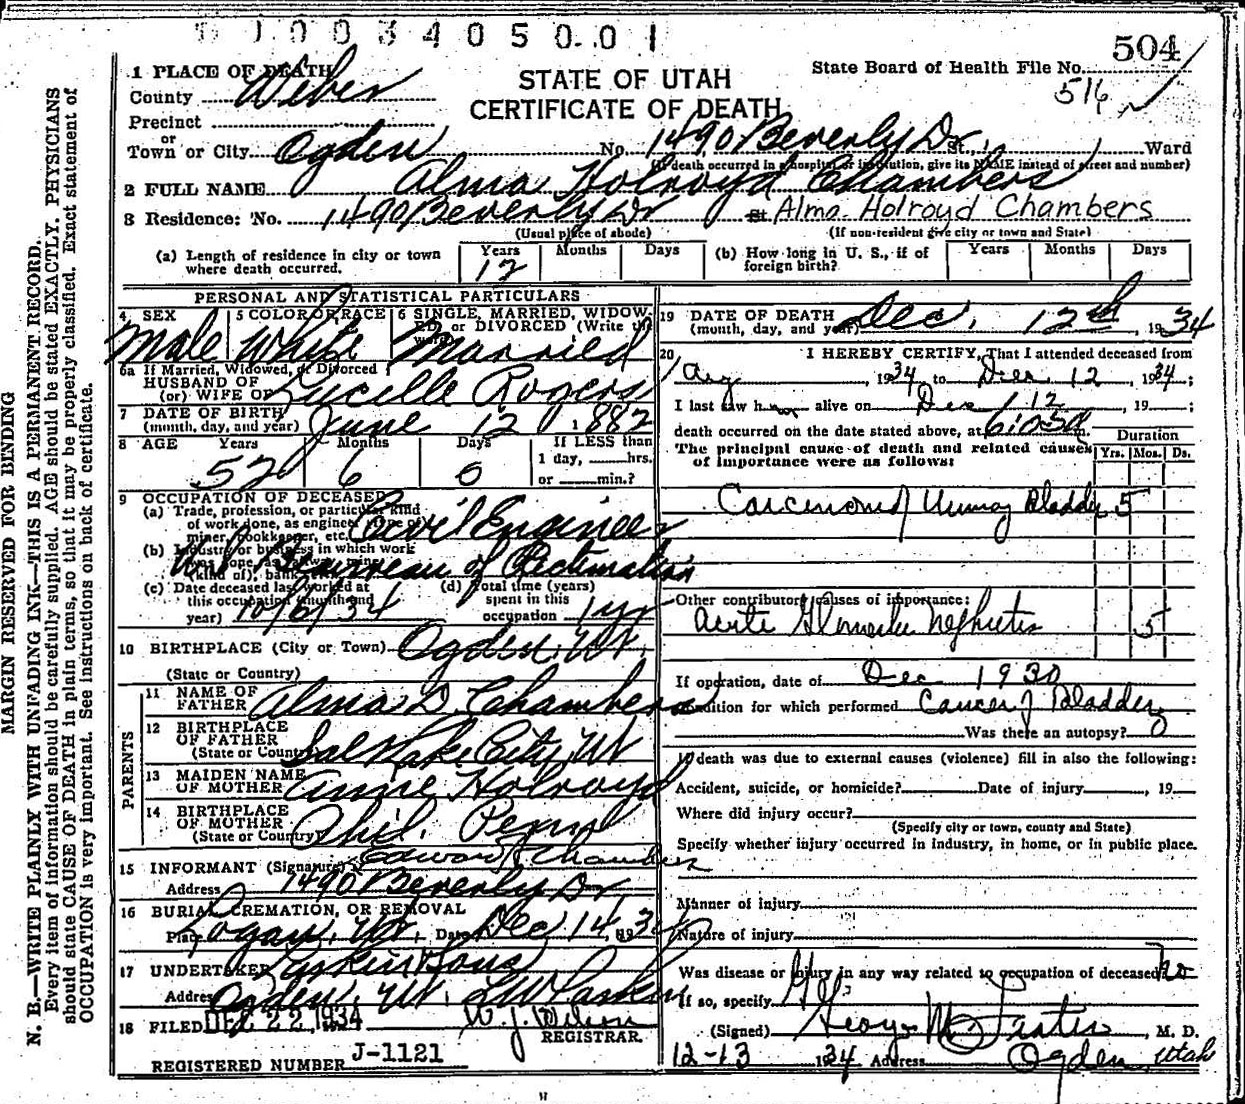 1 1 0 0 3 4 0 5 0 0 1
504
1 PLACE OF DEATH
STATE OF UTAH
State Board of Health File No.
County Weber
CERTIFICATE OF DEATH
516
Precinct
or
Town or City Ogden No. 1490 Beverly Dr St., Ward
(If death occurred in a hospital or institution, give its NAME instead of street and number)
2 FULL NAME Alma Holroyd Chambers
3 Residence: No. 1490 Beverly Dr St Alma Holroyd Chambers
(Usual place of abode) (If non-resident give city or town and State)
(a) Length of residence in city or town where death occurred. Years 12 Months Days (b) How long in U. S., if of foreign birth? Years Months Days
PERSONAL AND STATISTICAL PARTICULARS
4 SEX 5 COLOR OR RACE 6 SINGLE, MARRIED, WIDOWED, or DIVORCED (Write the word)
Male White Married
6a If Married, Widowed, or Divorced
HUSBAND OF
(or) WIFE OF Lucille Rogers
7 DATE OF BIRTH
(month, day, and year) June 12 1882
8 AGE Years Months Days If LESS than
1 day, hrs.
52 6 0 or min.?
9 OCCUPATION OF DECEASED
(a) Trade, profession, or particular kind
of work done, as engineer (type of)
miner, bookkeeper, etc. Civil Engineer
(b) Industry or business in which work
was done, as railway, mine
(kind of), bank, etc. U.S. Beaureau of Reclimation
(c) Date deceased last worked at
this occupation (month and
year) 10/6/34
(d) Total time (years)
spent in this
occupation 1 yr
10 BIRTHPLACE (City or Town) Ogden, Ut.
(State or Country)
PARENTS
11 NAME OF
FATHER Alma D. Chambers
12 BIRTHPLACE
OF FATHER
(State or Country) Salt Lake City, Ut
13 MAIDEN NAME
OF MOTHER Annie Holroyd
14 BIRTHPLACE
OF MOTHER
(State or Country) Phil. Penyl
15 INFORMANT (Signature) Edward Chambers
Address 1490 Beverly Dr
16 BURIAL, CREMATION, OR REMOVAL
Place Logan, Ut. Date Dec 14, 1934
17 UNDERTAKER Larkin & Sons
Address Ogden, Ut. L W Larkin
18 FILED DEC 22 1934 W. J. Wilson
REGISTRAR.
REGISTERED NUMBER J-1121
19 DATE OF DEATH
(month, day, and year) Dec. 12th, 1934
20 I HEREBY CERTIFY, That I attended deceased from
Aug, 1934 to Dec 12, 1934;
I last saw him alive on Dec 12, 19;
death occurred on the date stated above, at m. Duration
The principal cause of death and related causes Yrs. Mos. Ds.
of importance were as follows:
Carcinoma of Urinary Bladder 5
Other contributory causes of importance:
Acute Glomerular Nephritis 5
If operation, date of Dec 1930
Condition for which performed Cancer of Bladder
Was there an autopsy?
If death was due to external causes (violence) fill in also the following:
Accident, suicide, or homicide? Date of injury, 19
Where did injury occur?
(Specify city or town, county and State)
Specify whether injury occurred in industry, in home, or in public place.
Manner of injury
Nature of injury
Was disease or injury in any way related to occupation of deceased? No
If so, specify
(Signed) George M., M. D.
12-13 1934 Address Ogden, Utah
MARGIN RESERVED FOR BINDING
N. B.—WRITE PLAINLY WITH UNFADING INK—THIS IS A PERMANENT RECORD.
Every item of information should be carefully supplied. AGE should be stated EXACTLY. PHYSICIANS
should state CAUSE OF DEATH in plain terms, so that it may be properly classified. Exact statement of
OCCUPATION is very important. See instructions on back of certificate.